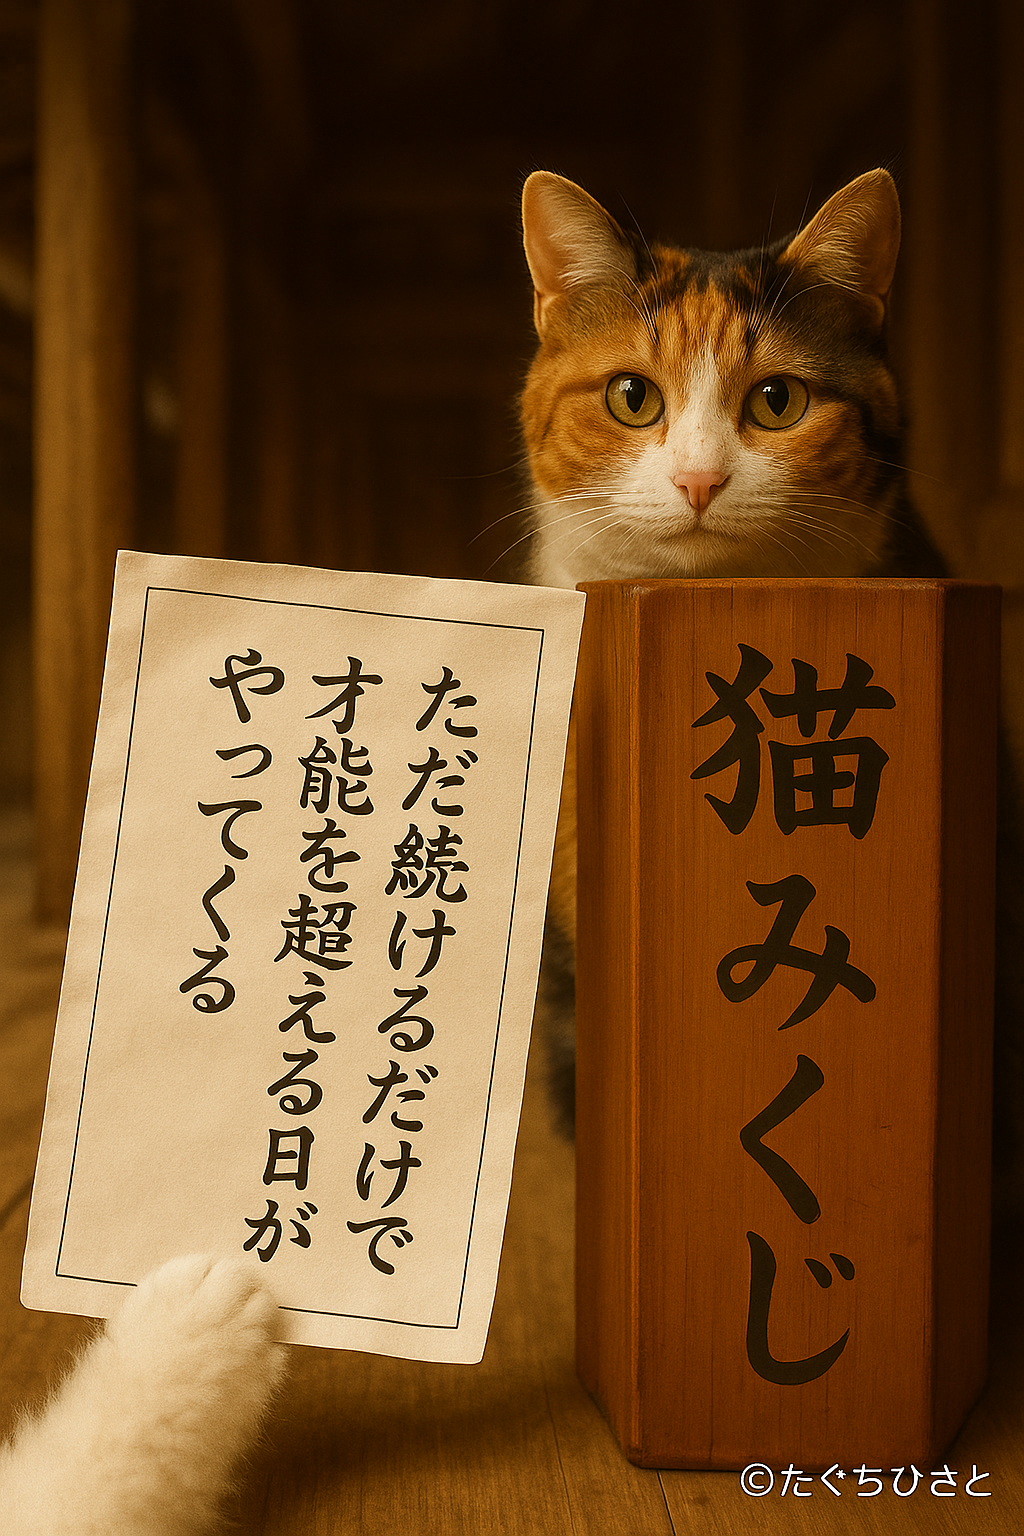 ただ続けるだけで
才能を超える日が
やってくる
猫みくじ
©たぐちひさと